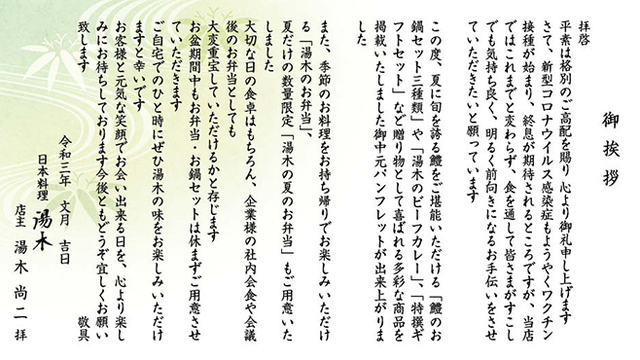 御挨拶
拝啓
平素は格別のご高配を賜り 心より御礼申し上げます
さて、新型コロナウイルス感染症もようやくワクチン
接種が始まり、終息が期待されるところですが、当店
ではこれまでと変わらず、食を通して皆さまがすこし
でも気持ち良く、明るく前向きになるお手伝いをさせ
ていただきたいと願っています
この度、夏に旬を誇る鱧をご堪能いただける「鱧のお
鍋セット三種類」や「湯木のビーフカレー」、「特撰ギ
フトセット」など贈り物として喜ばれる多彩な商品を
掲載いたしました御中元パンフレットが出来上がりま
した
また、季節のお料理をお持ち帰りでお楽しみいただけ
る「湯木のお弁当」、
夏だけの数量限定「湯木の夏のお弁当」もご用意いた
しました
大切な日の食卓はもちろん、企業様の社内会食や会議
後のお弁当としても
大変重宝していただけるかと存じます
お盆期間中もお弁当・お鍋セットは休まずご用意させ
ていただきます
ご自宅でのひと時にぜひ湯木の味をお楽しみいただけ
ますと幸いです
お客様と元気な笑顔でお会い出来る日を、心より楽し
みにお待ちしております今後ともどうぞ宜しくお願い
致します
敬具
令和三年 文月 吉日
日本料理 湯木
店主 湯木 尚二 拝